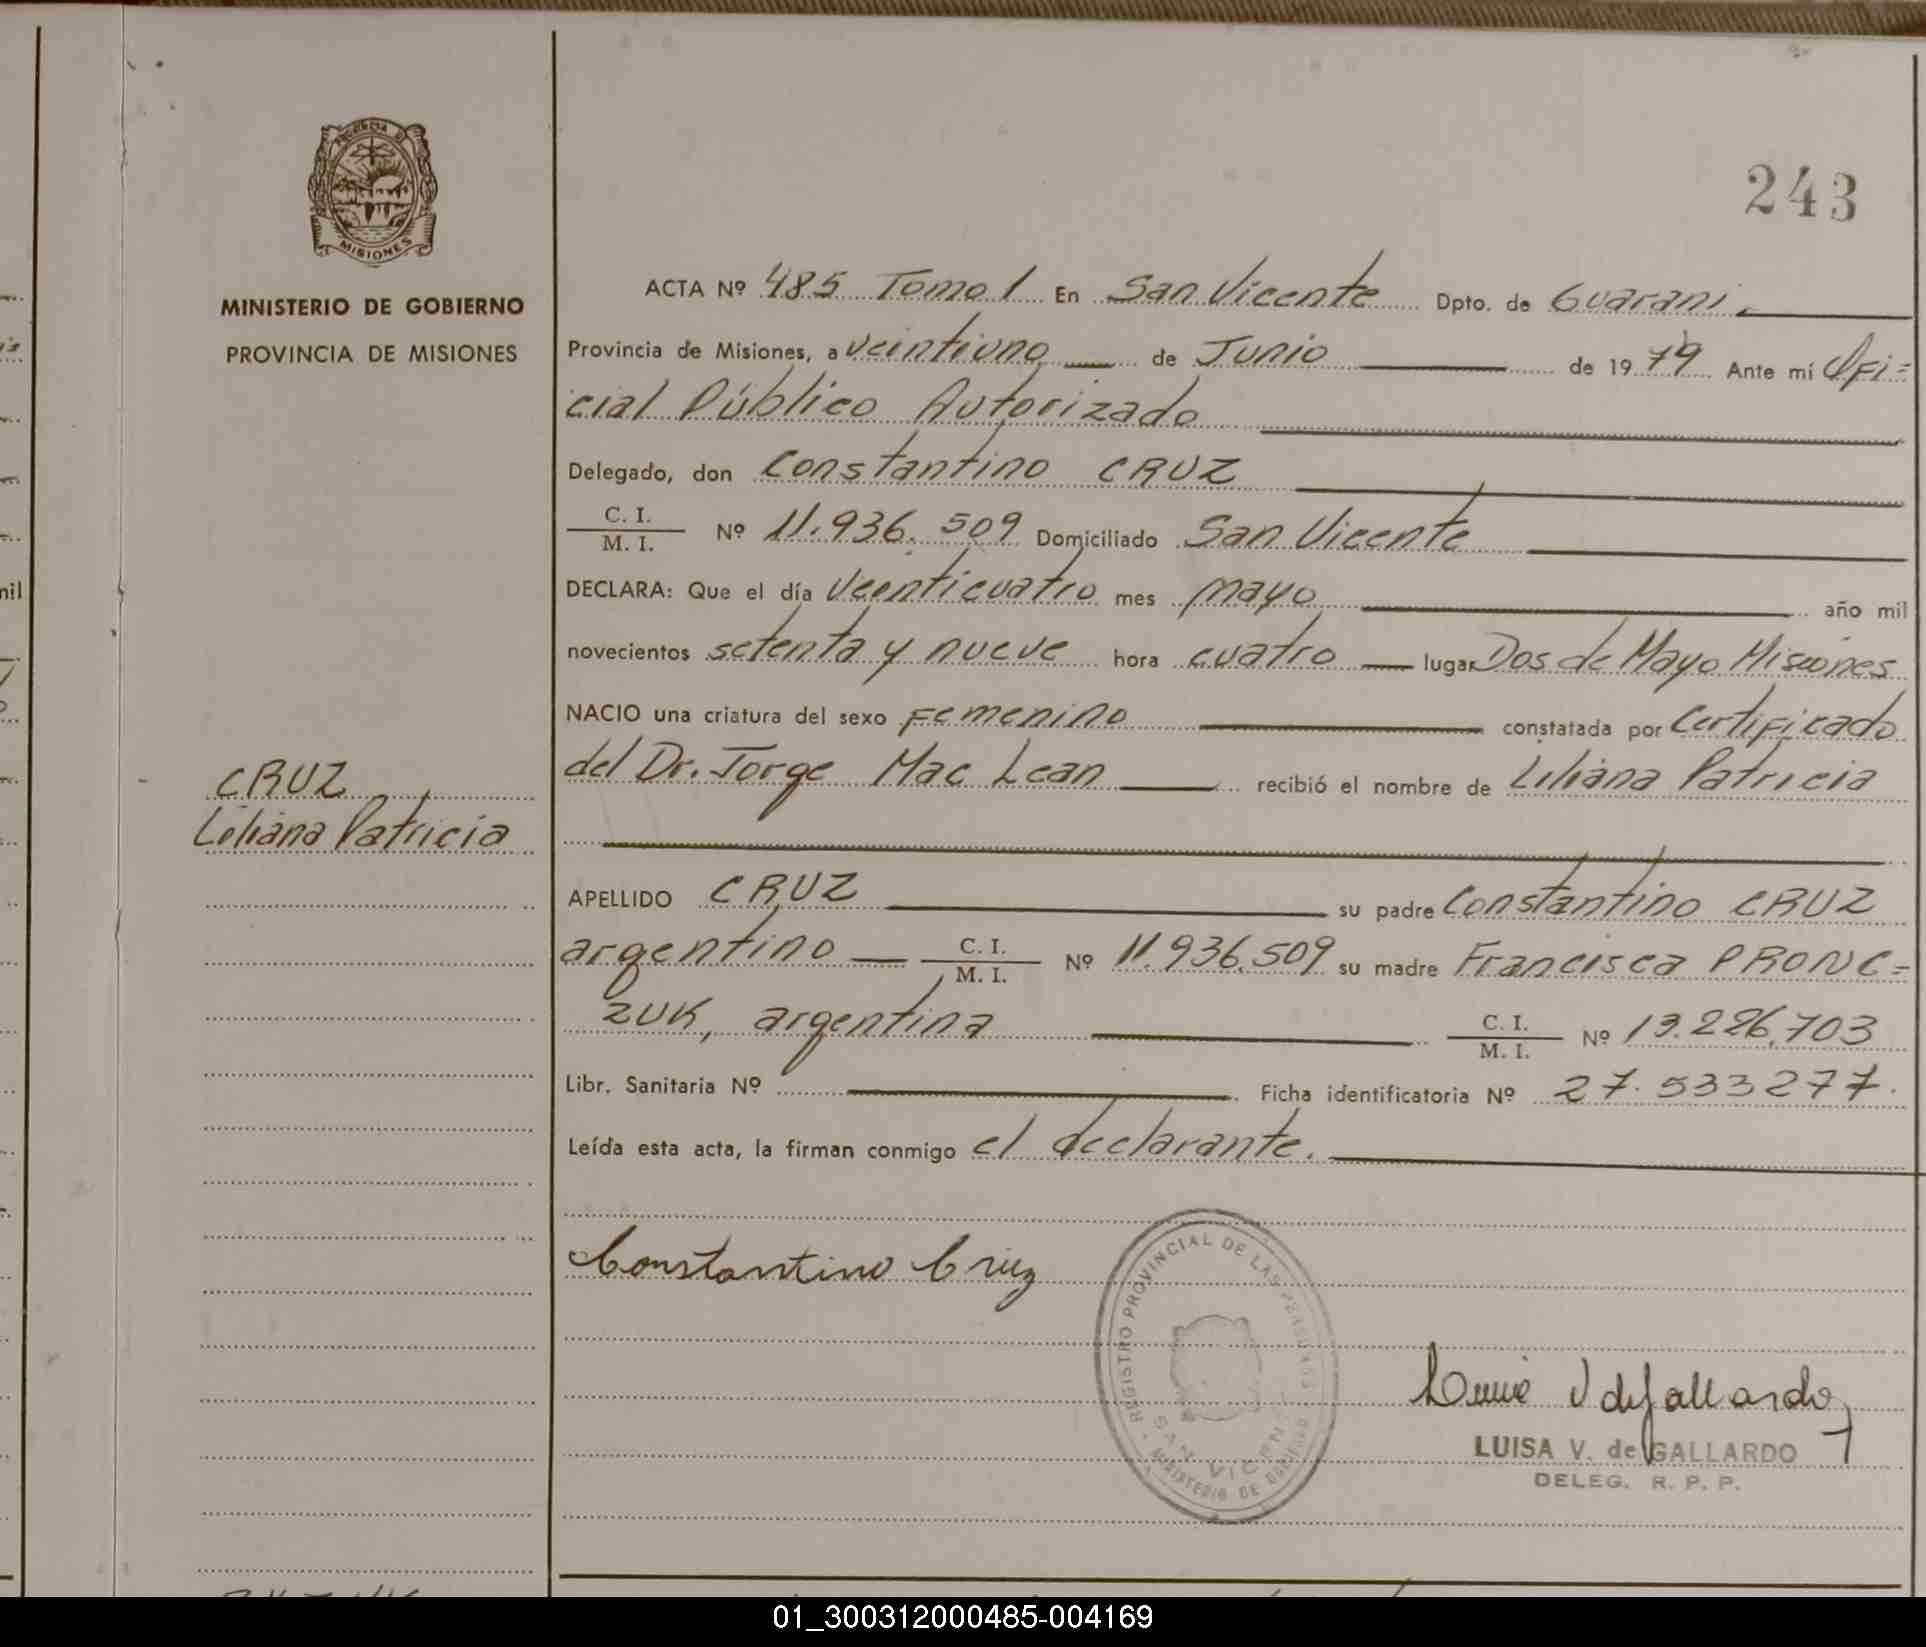 PROVINCIA DE
MISIONES
MINISTERIO DE GOBIERNO
PROVINCIA DE MISIONES
CRUZ
Liliana Patricia
243
ACTA Nº 485 Tomo 1 En San Vicente Dpto. de Guarani.
Provincia de Misiones, a veintiuno de Junio de 1979 Ante mí Ofi=
cial Público Autorizado
Delegado, don Constantino CRUZ
C. I.
M. I. Nº 11.936.509 Domiciliado San Vicente
DECLARA: Que el día Veinticuatro mes mayo año mil
novecientos setenta y nueve hora cuatro lugar Dos de Mayo Misiones
NACIO una criatura del sexo Femenino constatada por Certificado
del Dr. Jorge Mac Lean recibió el nombre de Liliana Patricia
APELLIDO CRUZ su padre Constantino CRUZ
argentino C. I.
M. I. Nº 11.936.509 su madre Francisca PRONC=
ZUK, argentina C. I.
M. I. Nº 13.226.703
Libr. Sanitaria Nº Ficha identificatoria Nº 27.533277.
Leída esta acta, la firman conmigo el declarante.
Constantino Cruz
REGISTRO PROVINCIAL DE LAS PERSONAS
SAN VICENTE
MINISTERIO DE GOBIERNO
Luisa V de Gallardo
LUISA V. de GALLARDO
DELEG. R. P. P.
mil
01_300312000485-004169